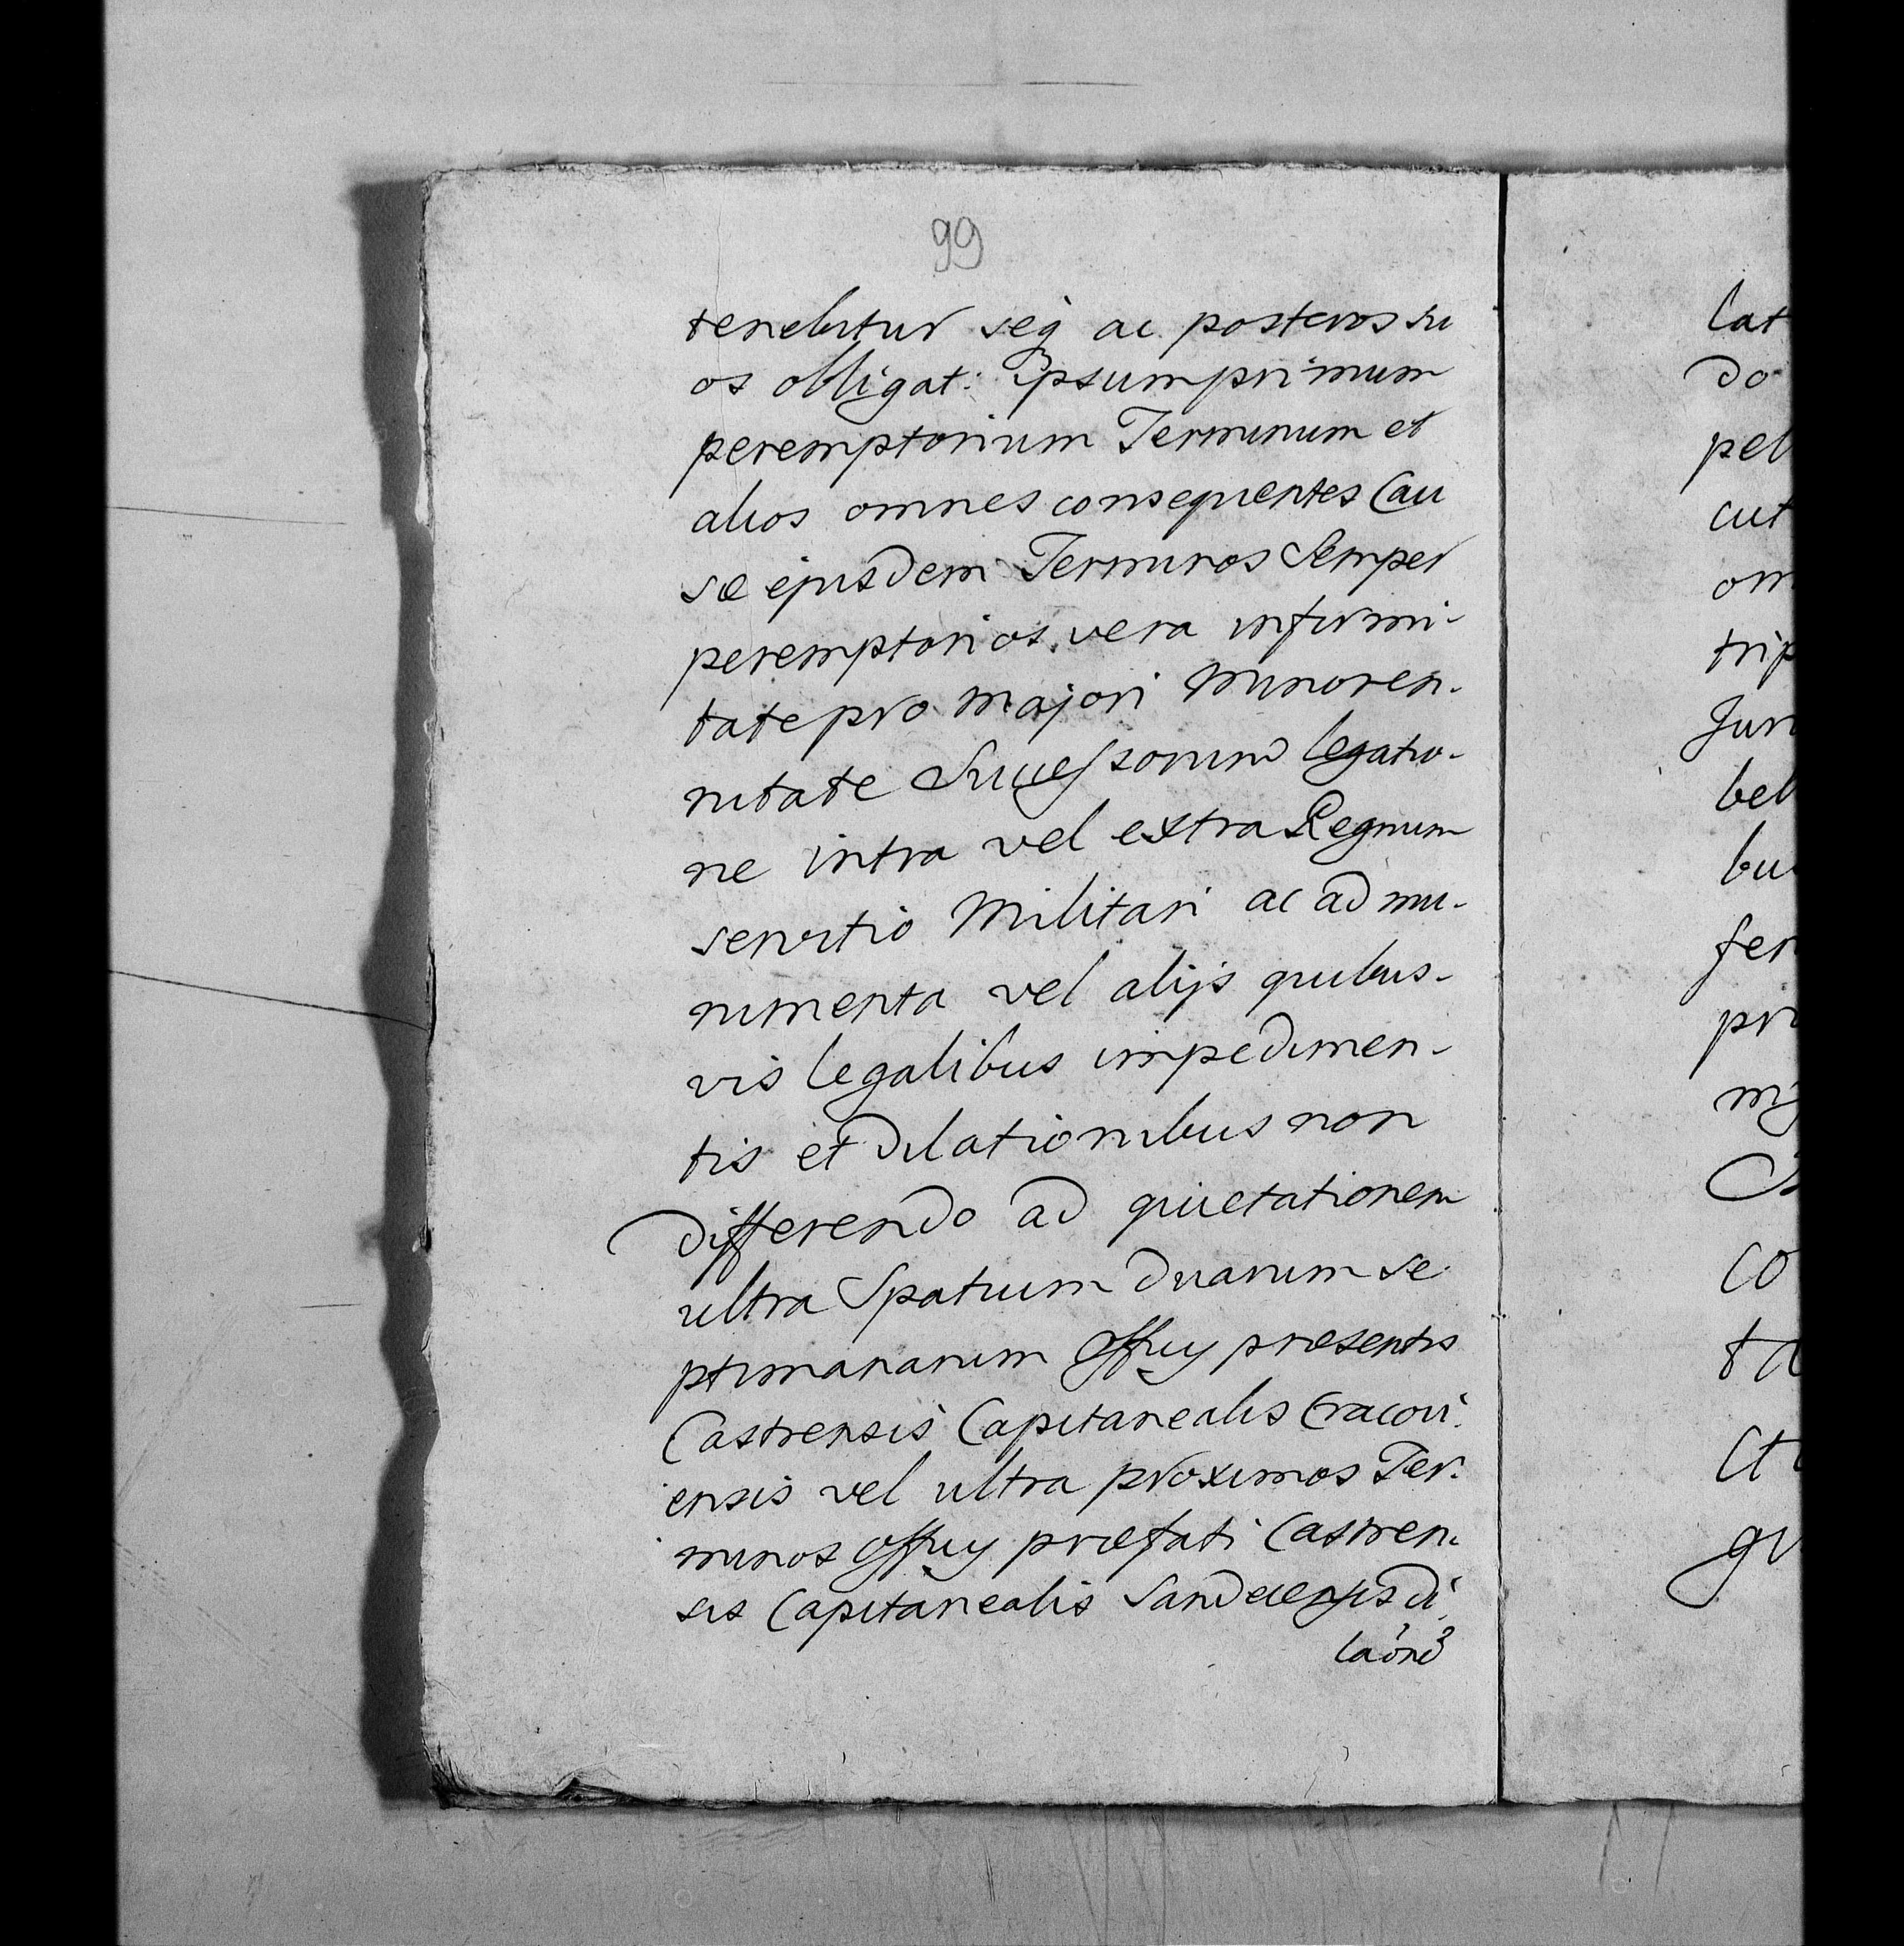 99
tenebitur seq ac posteros su
os obligat: Ipsum primum
peremptorium Terminum et
alios omnes consequentes Cau
sæ ejusdem Terminos Semper
peremptorios vera infirmi-
tate pro majori minoren-
nitate Successorum legatio-
ne intra vel extra Regnum
servitio Militari ac ad mu-
nimenta vel alijs quibus-
vis legalibus impedimen-
tis et dilationibus non
differendo ad quietationem
ultra Spatium duarum se
ptimanarum Officy præsentis
Castrensis Capitanealis Cracovi.
ensis vel ultra proximos Ter.
minos Officy præfati Castren.
sis Capitanealis Sandecensis di
lat
do
pel
cut
om
trip
Jur
bel
bu
fer
pri
co
ta